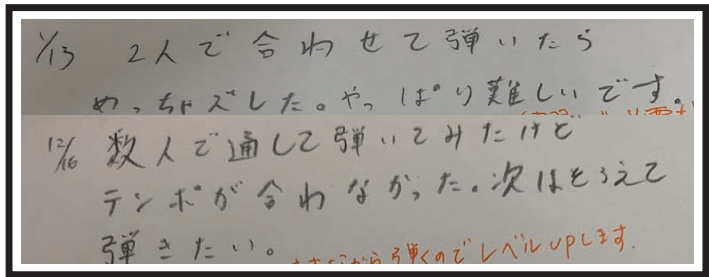 1/13 2人で合わせて弾いたら
めっちゃズレした。やっぱり難しいです。
12/16 数人で通して弾いてみたけど
テンポが合わなかった。次はそろえて
弾きたい。 から弾くのでレベルUPします。